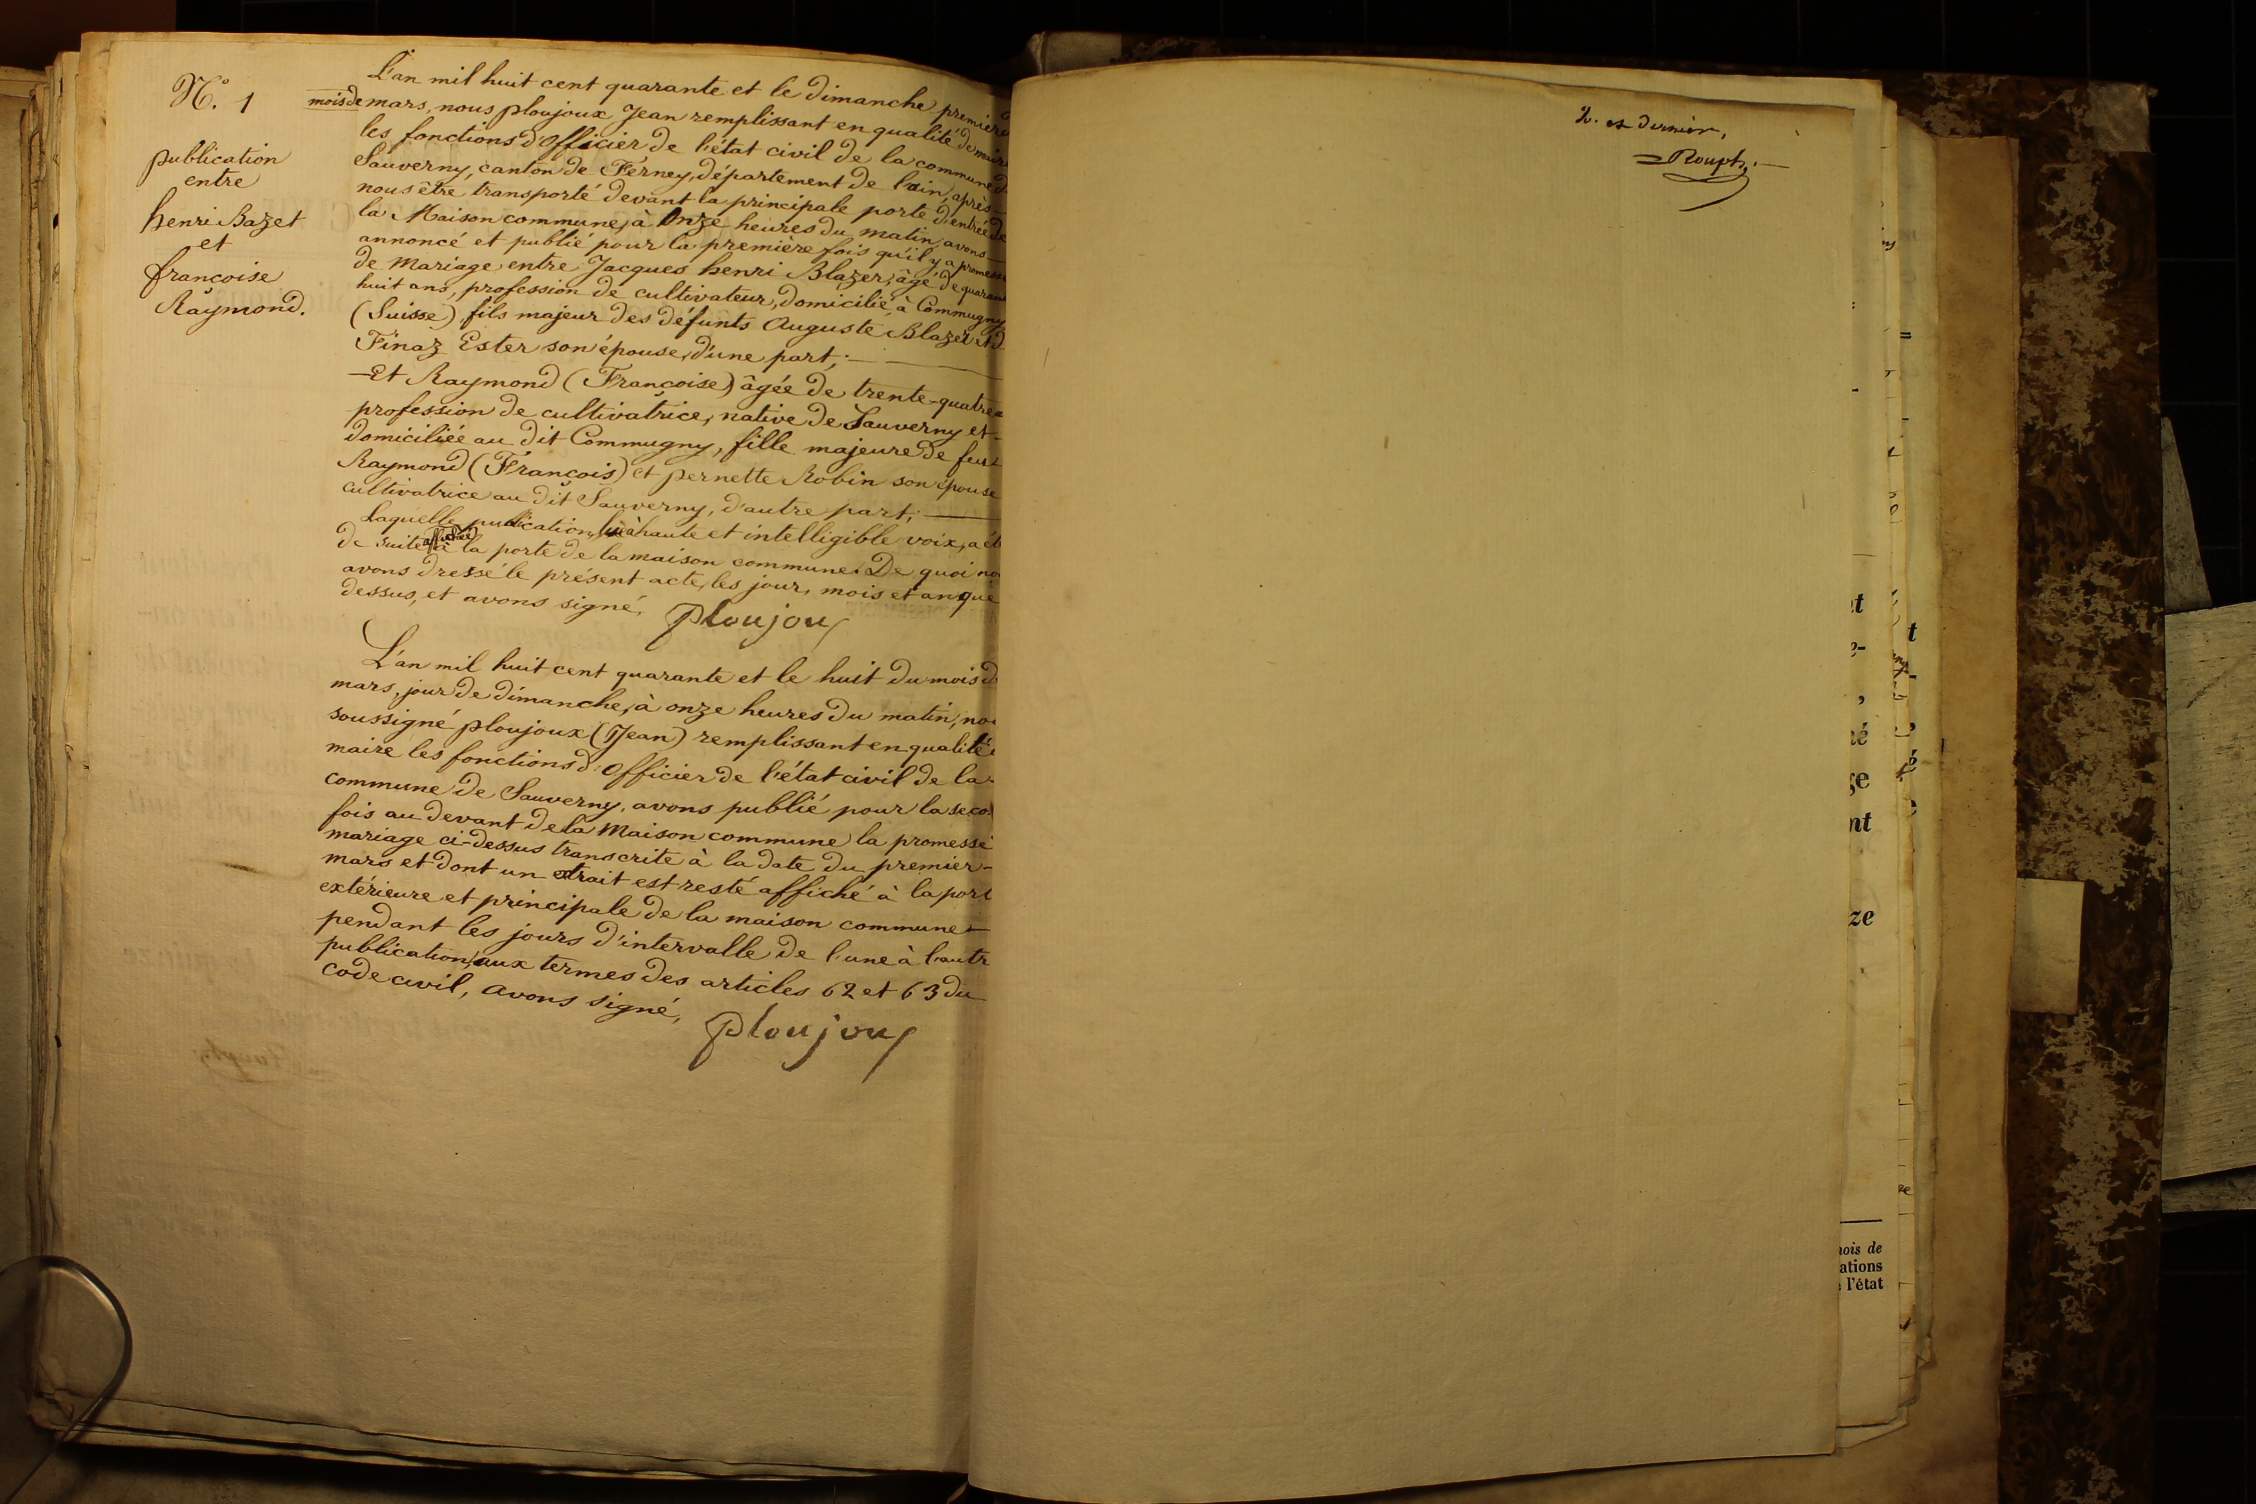 N.° 1
publication
entre
henri Bazet
et
françoise
Raymond.
L'an mil huit cent quarante et le dimanche premier
mois de mars, nous ploujoux Jean remplissant en qualité de maire
les fonctions d'officier de l'état civil de la commune de
Sauverny, canton de Ferney, département de l'ain, après
nous être transporté devant la principale porte d'entrée de
la Maison commune, à Onze heures du matin, avons
annoncé et publié pour la première fois qu'il y a promesse
de Mariage entre Jacques henri Blazer, âgé de quarante
huit ans, profession de cultivateur, domicilié, à Commugny
(Suisse) fils majeur des défunts Auguste Blazer et d
Finaz Ester son épouse, d'une part;
Et Raymond (Françoise) âgée de trente-quatre a
profession de cultivatrice, native de Sauverny et
domiciliée au dit Commugny, fille majeure de feu
Raymond (François) et pernette Robin son épouse
cultivatrice au dit Sauverny, d'autre part;
Laquelle publication, lue à haute et intelligible voix, a ét
de suite affichée à la porte de la maison commune. De quoi no
avons dressé le présent acte, les jour, mois et an que
dessus, et avons signé,
ploujoux
L'an mil huit cent quarante et le huit du mois d
mars, jour de dimanche, à onze heures du matin, nou
soussigné ploujoux (Jean) remplissant en qualité
maire les fonctions d'officier de l'état civil de la
commune de Sauverny, avons publié pour la seco
fois au devant de la Maison commune la promesse
mariage ci-dessus transcrite à la date du premier
mars et dont un extrait est resté affiché à la port
extérieure et principale de la maison commune
pendant les jours d'intervalle de l'une à l'autr
publication, aux termes des articles 62 et 63 du
code civil, avons signé,
ploujoux
2. et dernier,
Roupt
nt
ze
mois de
ations
l'état